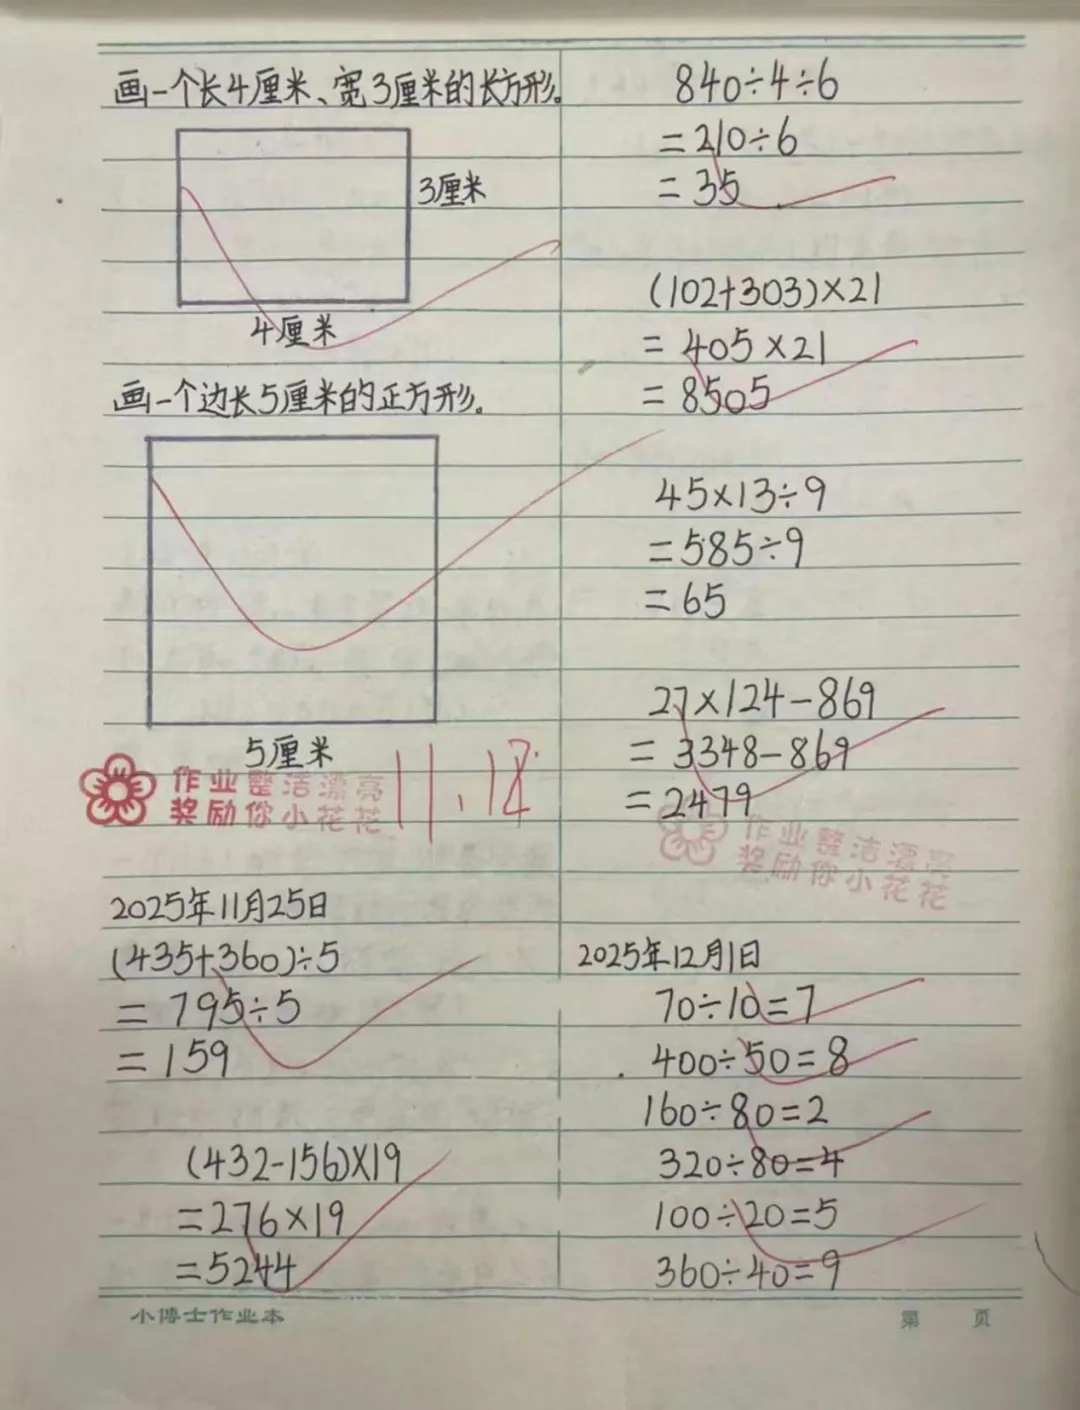 画一个长4厘米、宽3厘米的长方形。
3厘米
4厘米
画一个边长5厘米的正方形。
5厘米
作业整洁漂亮
奖励你小花花
11.18
2025年11月25日
(435+360)÷5
=795÷5
=159
(432-156)×19
=276×19
=5244
840÷4÷6
=210÷6
=35
(102+303)×21
=405×21
=8505
45×13÷9
=585÷9
=65
27×124-869
=3348-869
=2479
作业整洁漂亮
奖励你小花花
2025年12月1日
70÷10=7
400÷50=8
160÷80=2
320÷80=4
100÷20=5
360÷40=9
小博士作业本
第 页